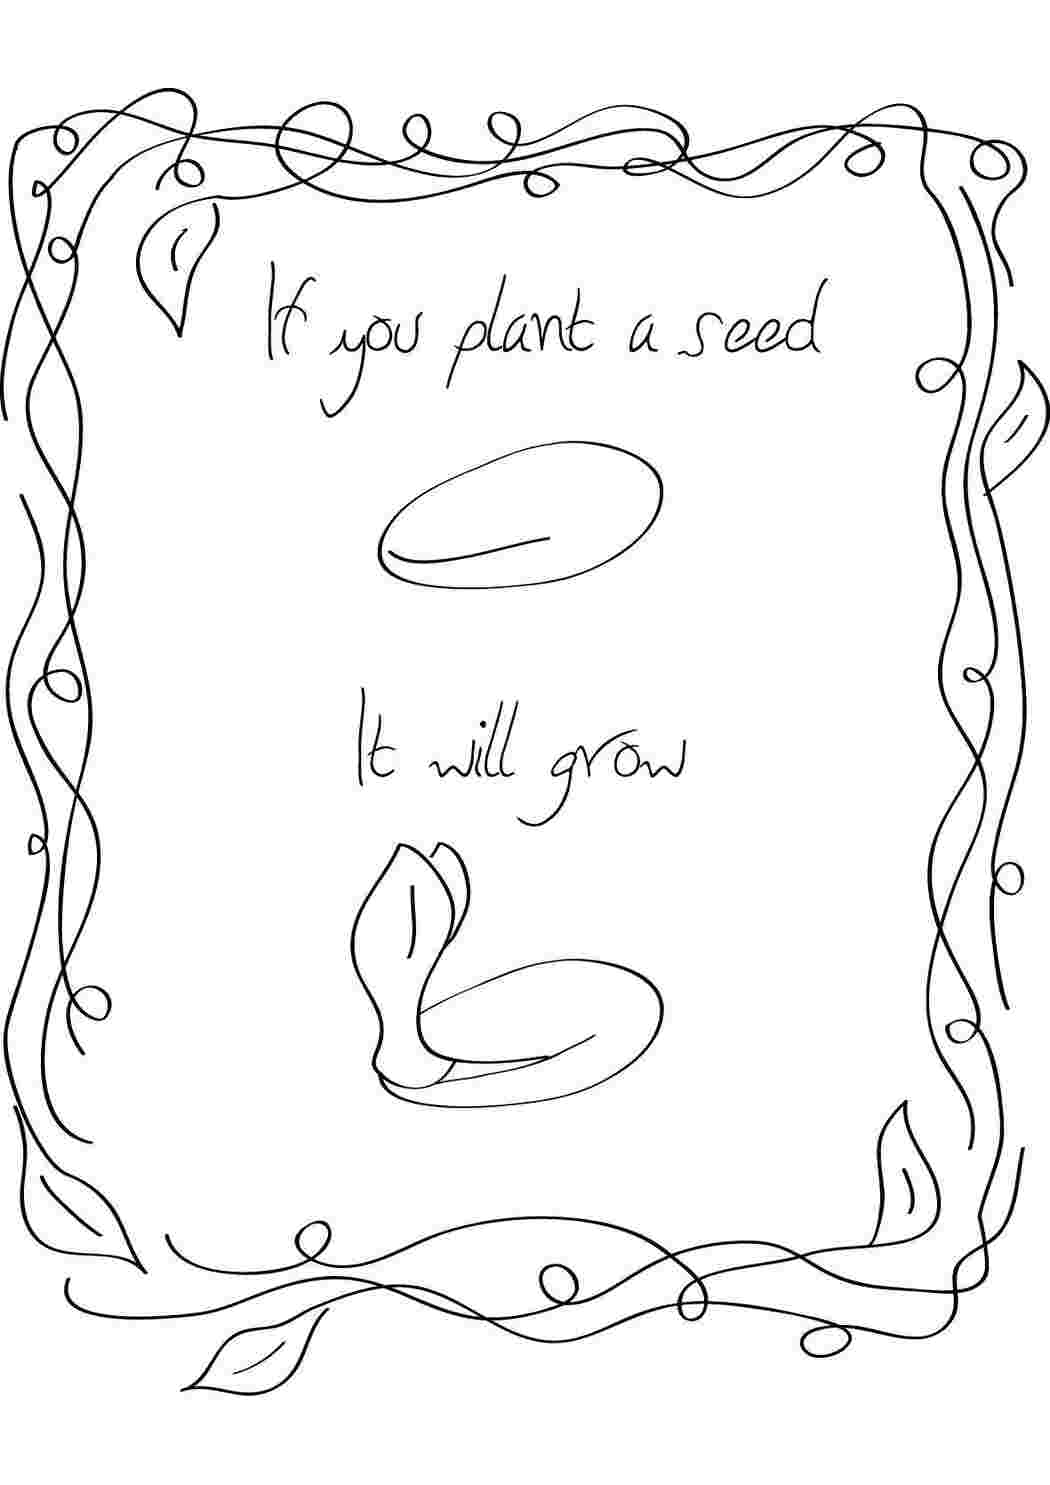 If you plant a seed
It will grow